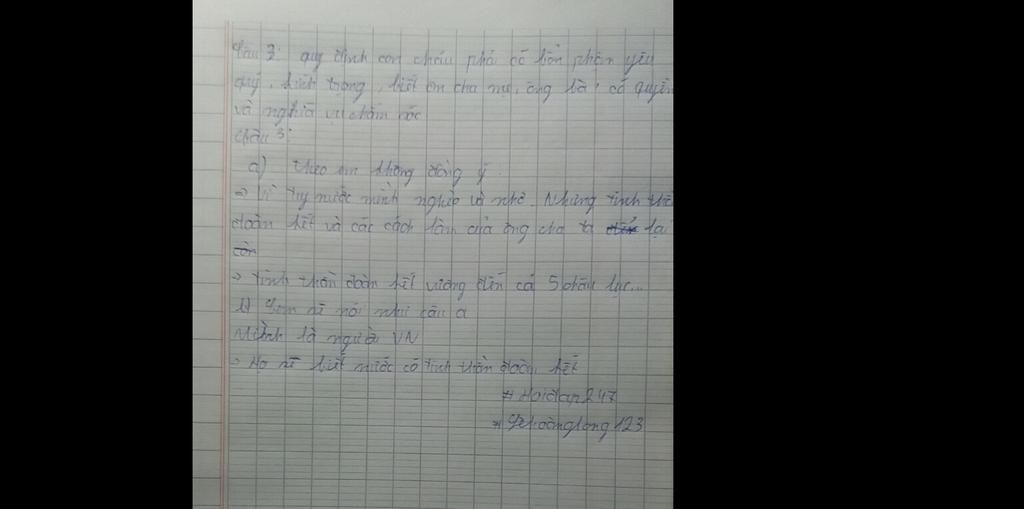 Câu 3: quy định con cháu phải có bổn phận yêu
quý, kính trọng, biết ơn cha mẹ, ông bà, có quyền
và nghĩa vụ chăm sóc
Câu 3:
a) theo em không đồng ý
⇒ Vì tuy nước mình nghèo và nhỏ. Nhưng tinh thần
đoàn kết và các cách làm của ông cha ta để lại
còn
⇒ Tinh thần đoàn kết vương đến cả 5 châu lục...
b) Em sẽ nói như câu a
Mình là người VN
⇒ Họ sẽ biết nước có tinh thần đoàn kết
# Hoidap247